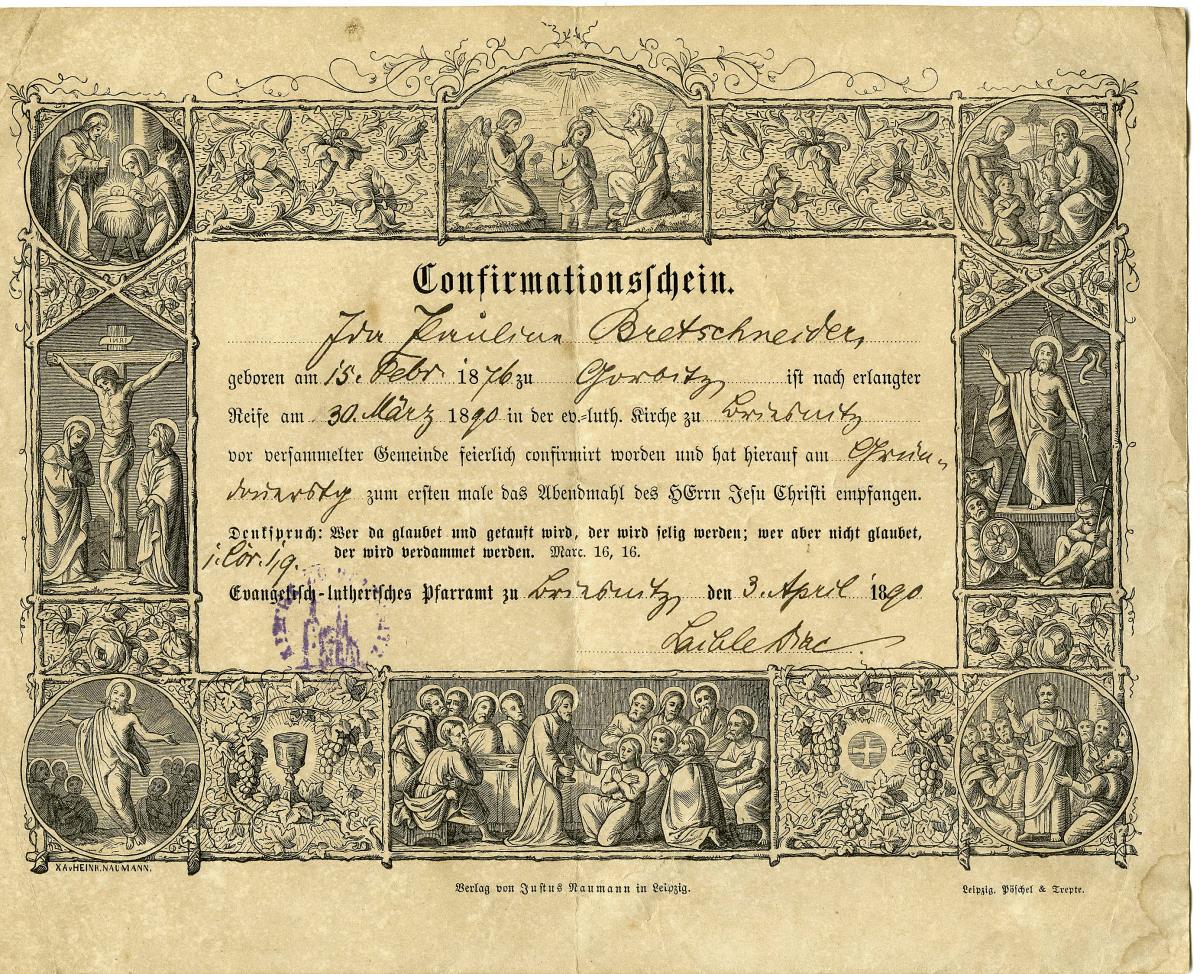 INRI
Confirmationsschein.
Ida Pauline Bretschneider,
geboren am 15. Febr. 1876 zu Gorbitz ist nach erlangter
Reife am 30. März 1890 in der ev.=luth. Kirche zu Briesnitz
vor versammelter Gemeinde feierlich confirmirt worden und hat hierauf am Grün-
donnerstg zum ersten male das Abendmahl des HErrn Jesu Christi empfangen.
Denkspruch: Wer da glaubet und getauft wird, der wird selig werden; wer aber nicht glaubet,
der wird verdammet werden. Marc. 16, 16.
1. Cor. 1, 9.
Evangelisch-lutherisches Pfarramt zu Briesnitz, den 3. April 1890
Diac.
XA v HEINR. NAUMANN.
Verlag von Justus Naumann in Leipzig.
Leipzig. Pöschel & Trepte.